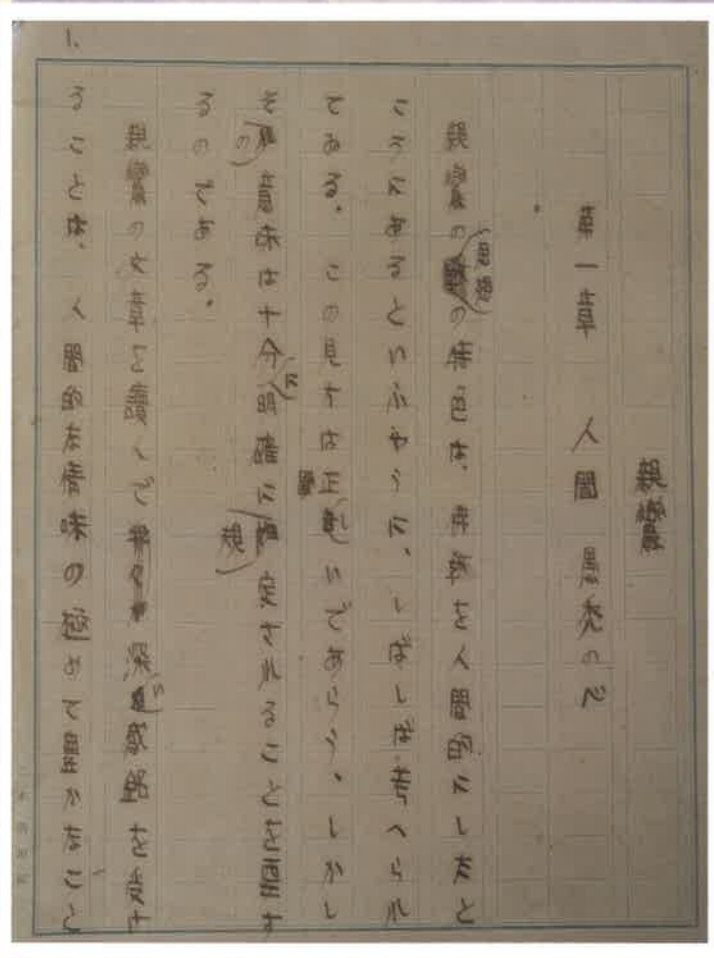 1.
親鸞
第一章 人間 愚禿の心
親鸞の思想の特色は、佛教を人間的にしたと
ころにあるといふやうに、しばしば考へられ
てゐる。この見方は正しいであらう。しかし
その意味は十分に明確に規定されることを要す
るのである。
親鸞の文章を讀んで深い感銘を受け
ることは、人間的な情味の極めて豊かなこと